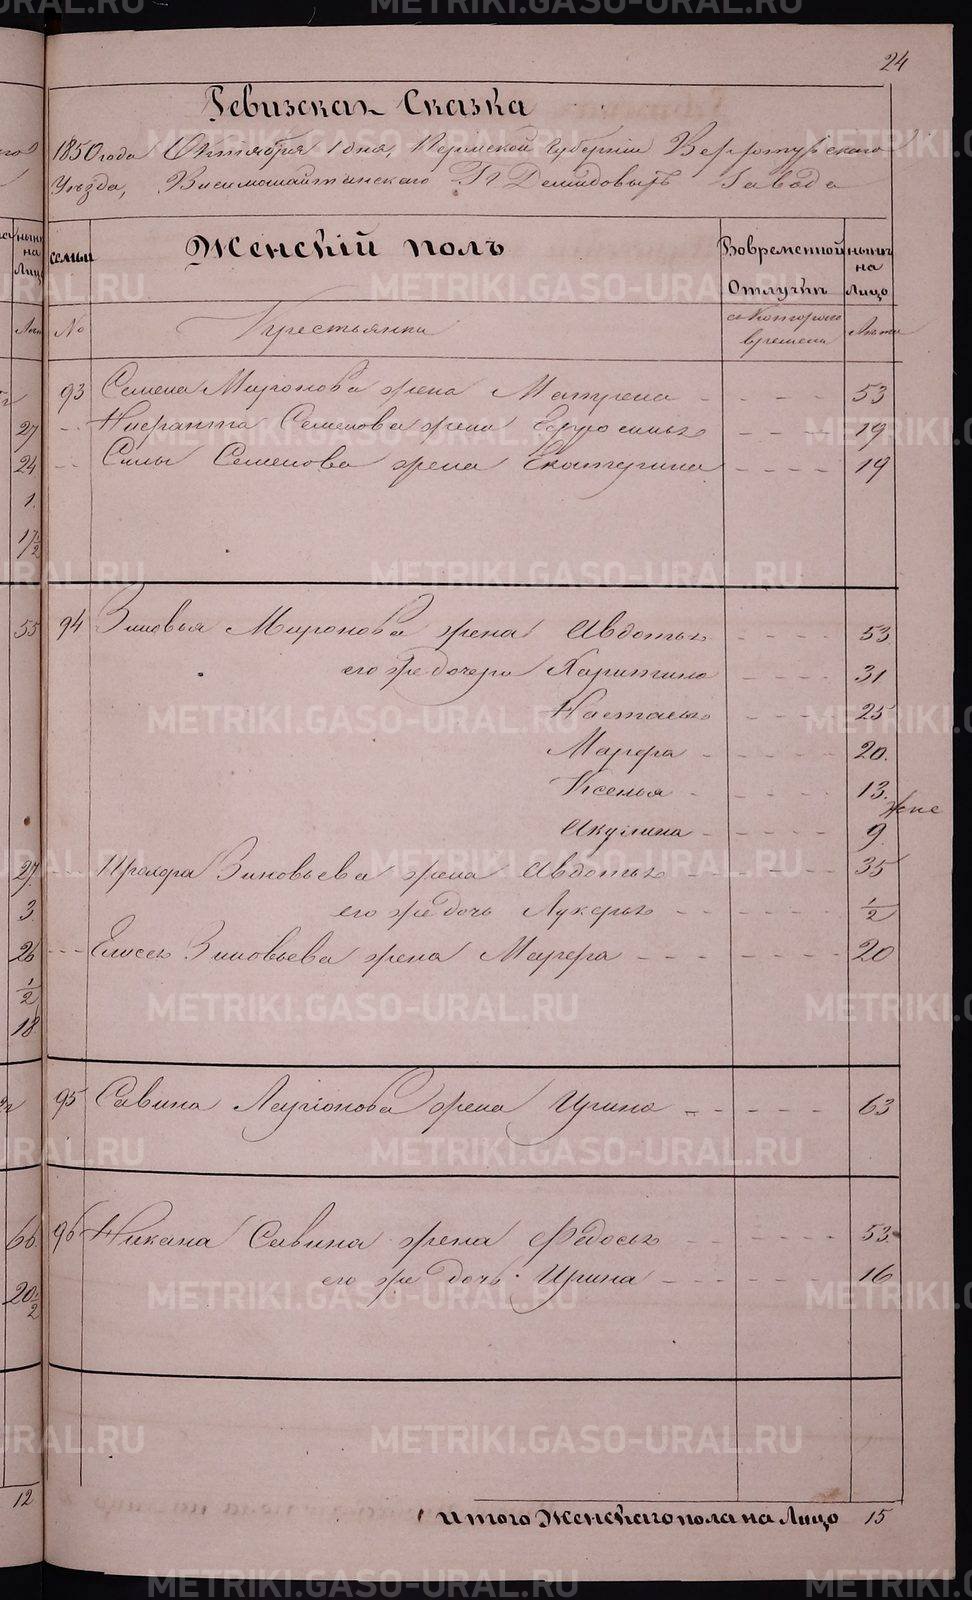 24
Ревизская Сказка
1850 года Октября 1 дня, Пермской Губернии Верхотурскаго
Уезда, Висимошайтанскаго Гг Демидовыхъ Завода
семьи
Женскій полъ
Во временной Отлучки
ныне на Лицо
№
Крестьянки
съ Котораго времени
Лета
93 Семена Миронова жена Матрена - - - - 53
- - Нифанта Семенова жена Ефросинья - - - 19
- - Силы Семенова жена Екатерина - - - - 19
94 Зиновья Миронова жена Авдотья - - - - 53
его же дочери Харитина - - - - 31
Настасья - - - 25
Марфа - - - - - 20.
Ксенья - - - - - 13.
Акулина - - - - - 9.
- - - Прохора Зиновьева жена Авдотья - - - - - 35
его же дочь Лукерья - - - - - 1/2
- - - Елисея Зиновьева жена Марфа - - - - - - 20
95 Савина Ларионова жена Ирина - - - - - - 63
96 Никана Савина жена Федосья - - - - - 53
его же дочь Ирина - - - - - - 16
Итого Женскаго пола на Лицо 15
27
24
1.
17 1/2
55
27.
3
26
1/2
18
66
20 1/2
12
METRIKI.GASO-URAL.RU